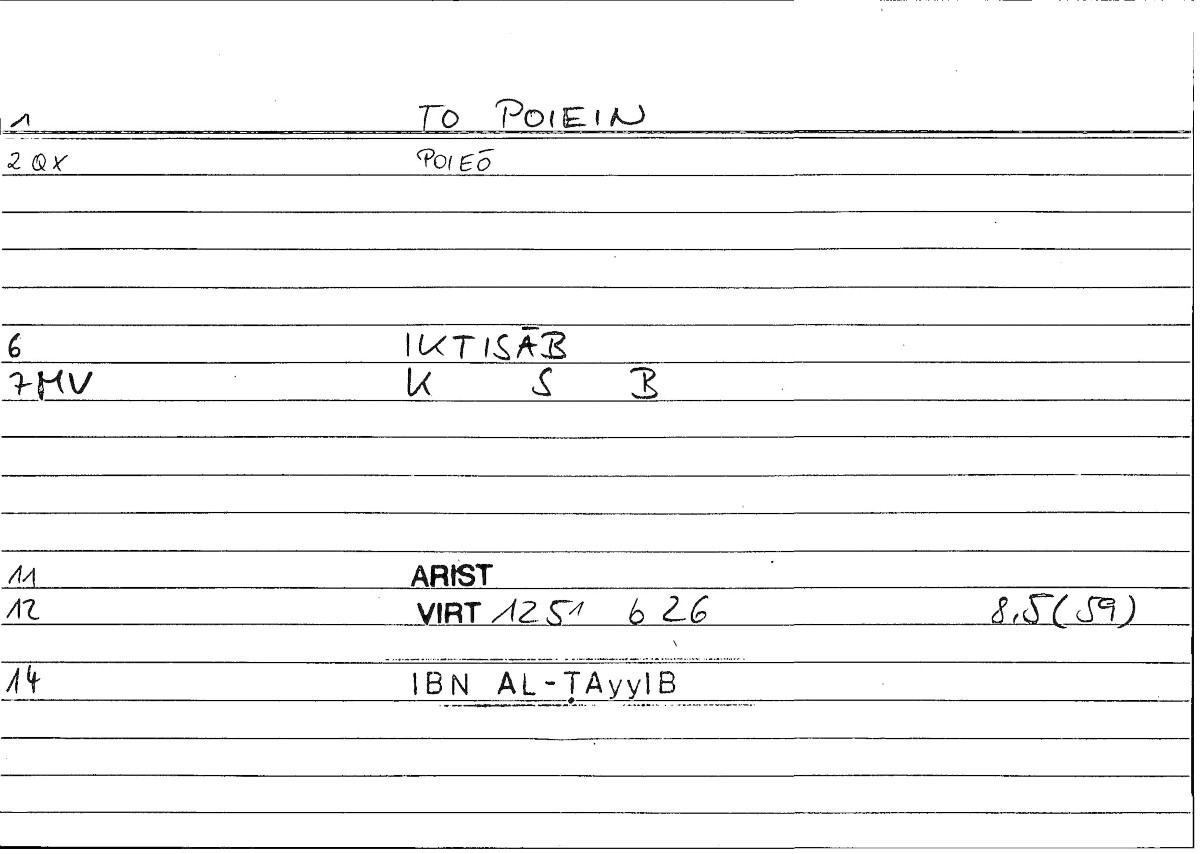 1 TO POIEIN
2 QX POIEŌ
6 IKTISĀB
7MV K S B
11 ARIST
12 VIRT 1251 b 26 8.5(59)
14 IBN AL-ṬAyyIB